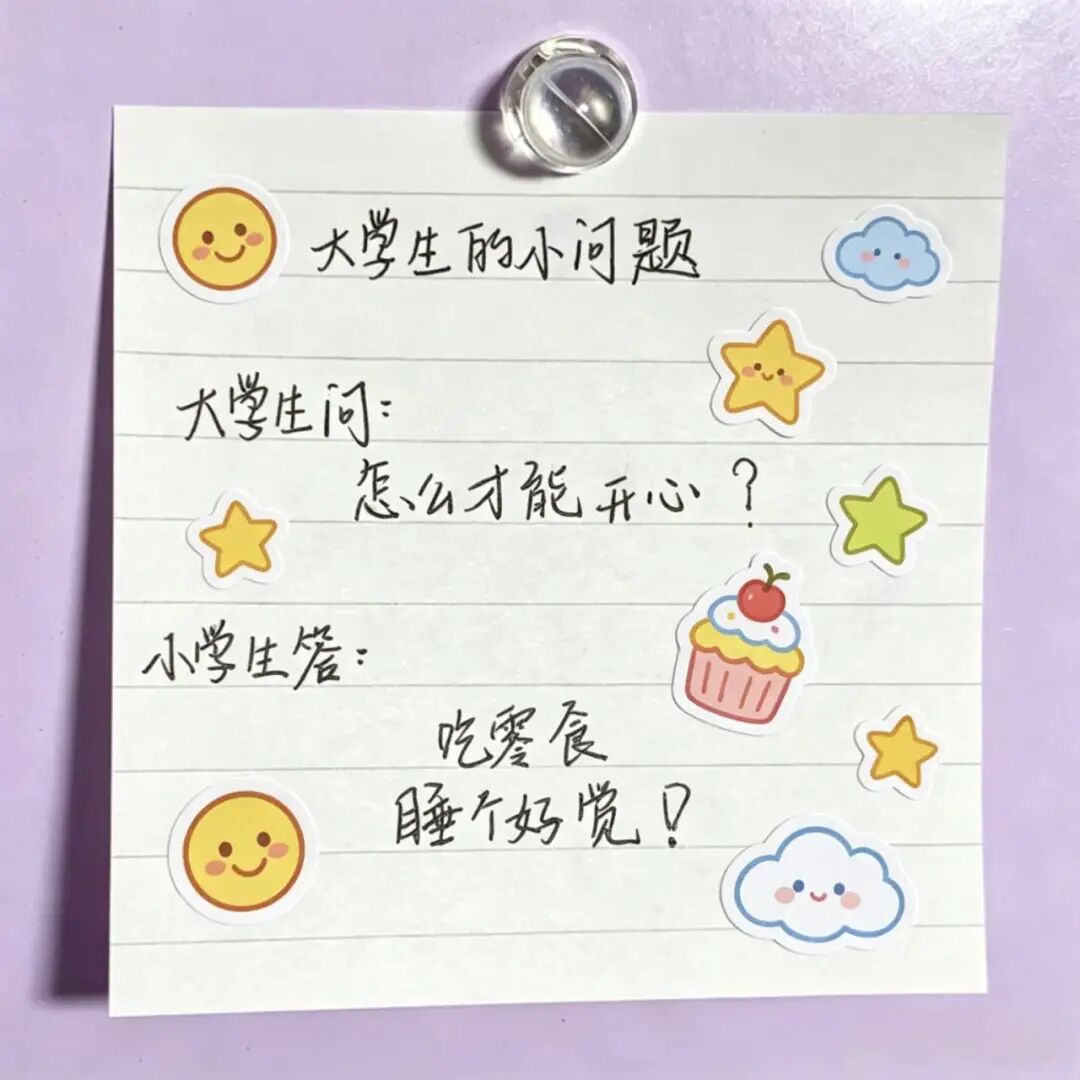 大学生的小问题
大学生问：
怎么才能开心？
小学生答：
吃零食
睡个好觉！